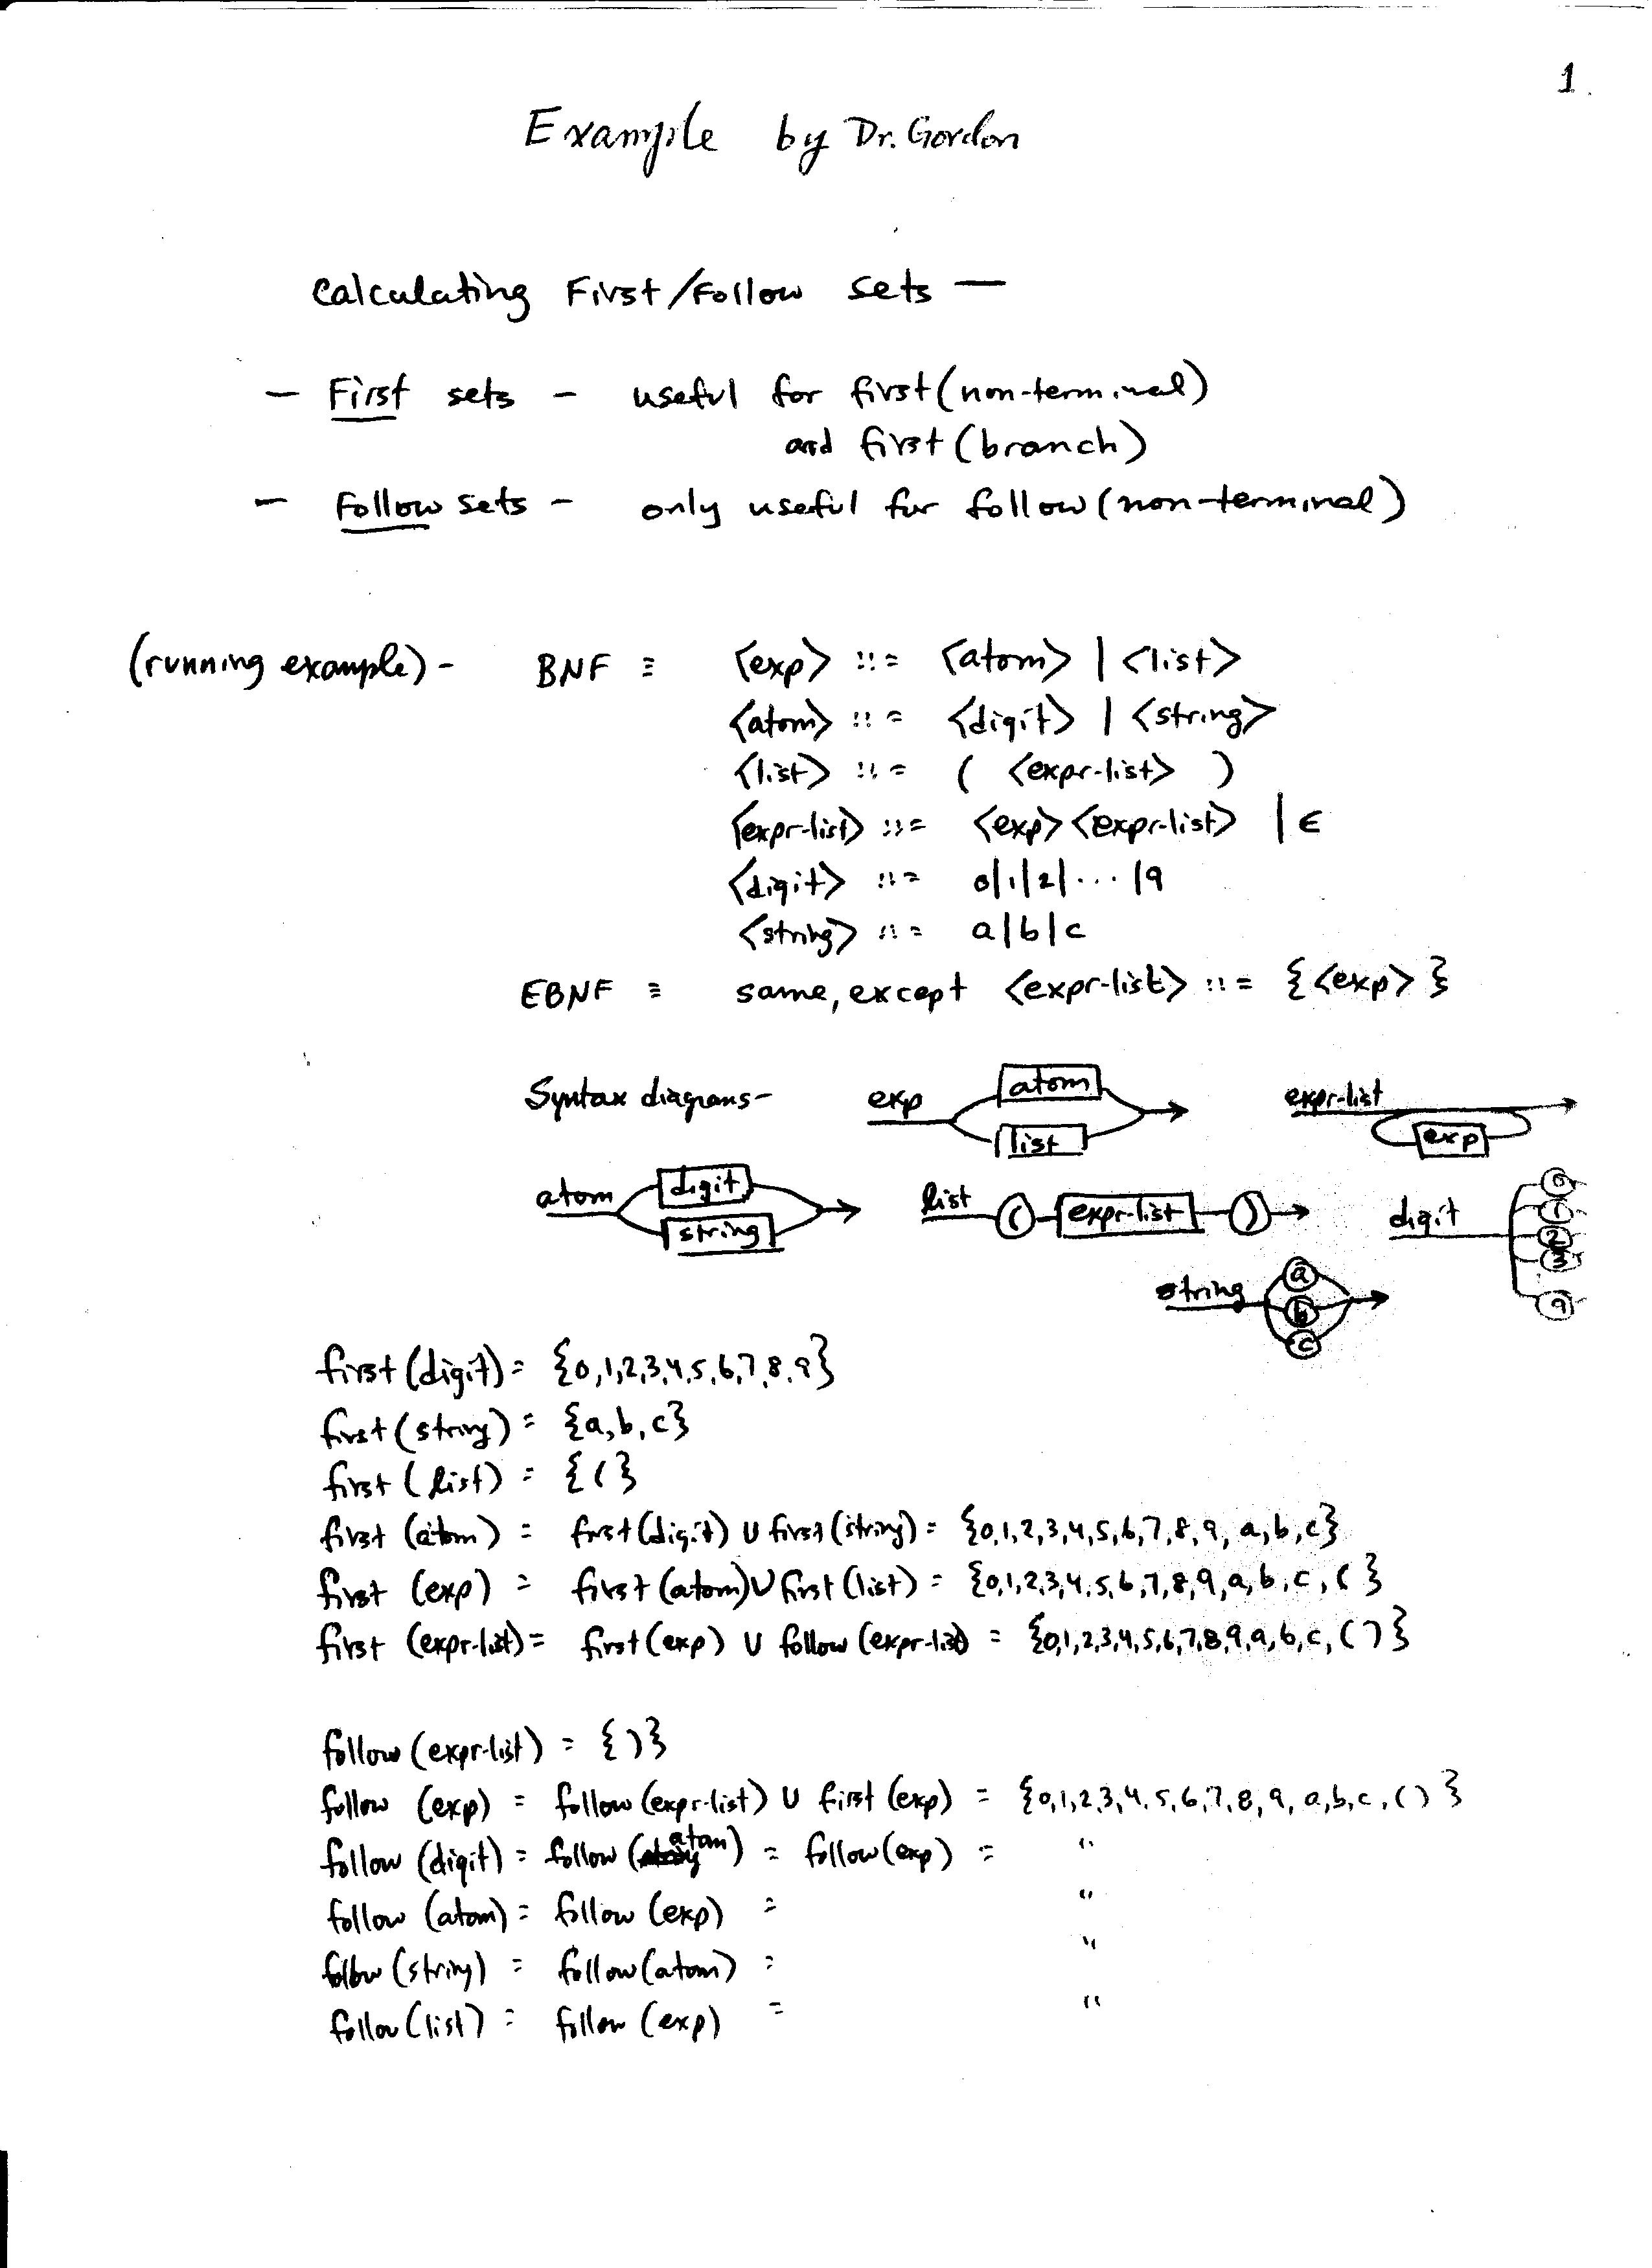 1.
Example by Dr. Gordon
Calculating First/Follow sets —
— First sets – useful for first(non-terminal)
and first(branch)
— Follow sets – only useful for follow(non-terminal)
(running example) - BNF ≡ <exp> ::= <atom> | <list>
<atom> ::= <digit> | <string>
<list> ::= ( <expr-list> )
<expr-list> ::= <exp><expr-list> | ε
<digit> ::= 0|1|2|...|9
<string> ::= a|b|c
EBNF ≡ same, except <expr-list> ::= {<exp>}
Syntax diagrams- exp atom list expr-list exp
atom digit string list ( expr-list ) digit 0 1 2 3 9
string a b c
first(digit) = {0,1,2,3,4,5,6,7,8,9}
first(string) = {a,b,c}
first(list) = {(}
first(atom) = first(digit) ∪ first(string) = {0,1,2,3,4,5,6,7,8,9,a,b,c}
first(exp) = first(atom) ∪ first(list) = {0,1,2,3,4,5,6,7,8,9,a,b,c,(}
first(expr-list) = first(exp) ∪ follow(expr-list) = {0,1,2,3,4,5,6,7,8,9,a,b,c,()}
follow(expr-list) = {)}
follow(exp) = follow(expr-list) ∪ first(exp) = {0,1,2,3,4,5,6,7,8,9,a,b,c,()}
follow(digit) = follow(atom) = follow(exp) = "
follow(atom) = follow(exp) = "
follow(string) = follow(atom) = "
follow(list) = follow(exp) = "